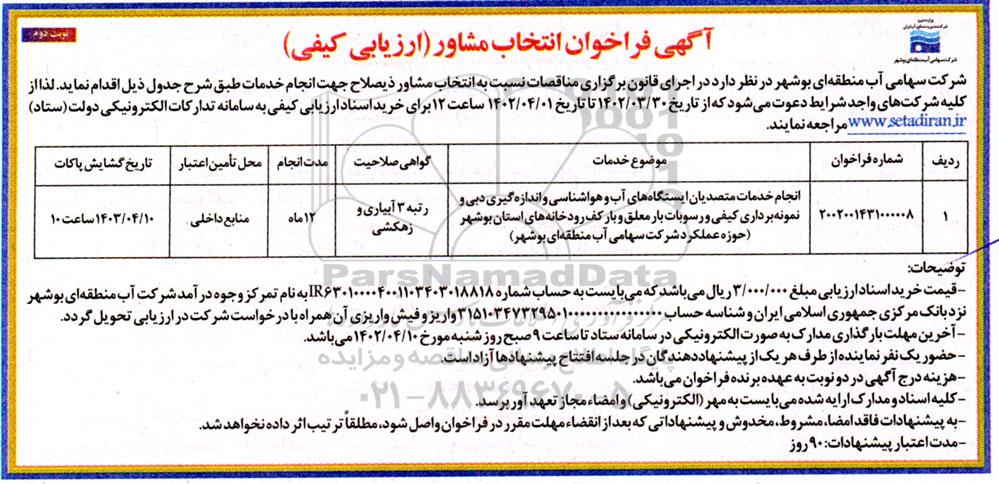 نوبت دوم
وزارت نیرو
شرکت سهامی آب منطقه‌ای بوشهر
آگهی فراخوان انتخاب مشاور (ارزیابی کیفی)
شرکت سهامی آب منطقه‌ای بوشهر در نظر دارد در اجرای قانون برگزاری مناقصات نسبت به انتخاب مشاور ذیصلاح جهت انجام خدمات طبق شرح جدول ذیل اقدام نماید. لذا از
کلیه شرکت‌های واجد شرایط دعوت می‌شود که از تاریخ ۱۴۰۲/۰۳/۳۰ تا تاریخ ۱۴۰۲/۰۴/۰۱ ساعت ۱۲ برای خرید اسناد ارزیابی کیفی به سامانه تدارکات الکترونیکی دولت (ستاد)
www.setadiran.ir مراجعه نمایند.
ردیف شماره فراخوان موضوع خدمات گواهی صلاحیت مدت انجام محل تأمین اعتبار تاریخ گشایش پاکات
۱ ۲۰۰۲۰۰۱۴۳۱۰۰۰۰۰۸ انجام خدمات متصدیان ایستگاه‌های آب و هواشناسی و اندازه‌گیری دبی و
نمونه برداری کیفی و رسوبات بار معلق و بار کف رودخانه‌های استان بوشهر
(حوزه عملکرد شرکت سهامی آب منطقه‌ای بوشهر)
رتبه ۳ آبیاری و
زهکشی
۱۲ماه منابع داخلی ۱۴۰۳/۰۴/۱۰ ساعت ۱۰
توضیحات:
-قیمت خرید اسناد ارزیابی مبلغ ۳/۰۰۰/۰۰۰ ریال می‌باشد که می‌بایست به حساب شماره IR۶۳۰۱۰۰۰۰۴۰۰۱۱۰۳۴۰۳۰۱۸۸۱۸ به نام تمرکز وجوه درآمد شرکت آب منطقه‌ای بوشهر
نزد بانک مرکزی جمهوری اسلامی ایران و شناسه حساب واریز و فیش واریزی آن همراه با درخواست شرکت در ارزیابی تحویل گردد.
-آخرین مهلت بارگذاری مدارک به صورت الکترونیکی در سامانه ستاد تا ساعت ۹ صبح روز شنبه مورخ ۱۴۰۲/۰۴/۱۰ می‌باشد.
-حضور یک نفر نماینده از طرف هر یک از پیشنهاددهندگان در جلسه افتتاح پیشنهادها آزاد است.
-هزینه درج آگهی در دو نوبت به عهده برنده فراخوان می‌باشد.
-کلیه اسناد و مدارک ارایه شده می‌بایست به مهر (الکترونیکی) و امضاء مجاز تعهد آور برسد.
-به پیشنهادات فاقد امضا، مشروط، مخدوش و پیشنهاداتی که بعد از انقضاء مهلت مقرر در فراخوان واصل شود، مطلقاً ترتیب اثر داده نخواهد شد.
-مدت اعتبار پیشنهادات: ۹۰ روز
ParsNamadData
۰۲۱-۸۸۳۴۹۶۷۰-۵